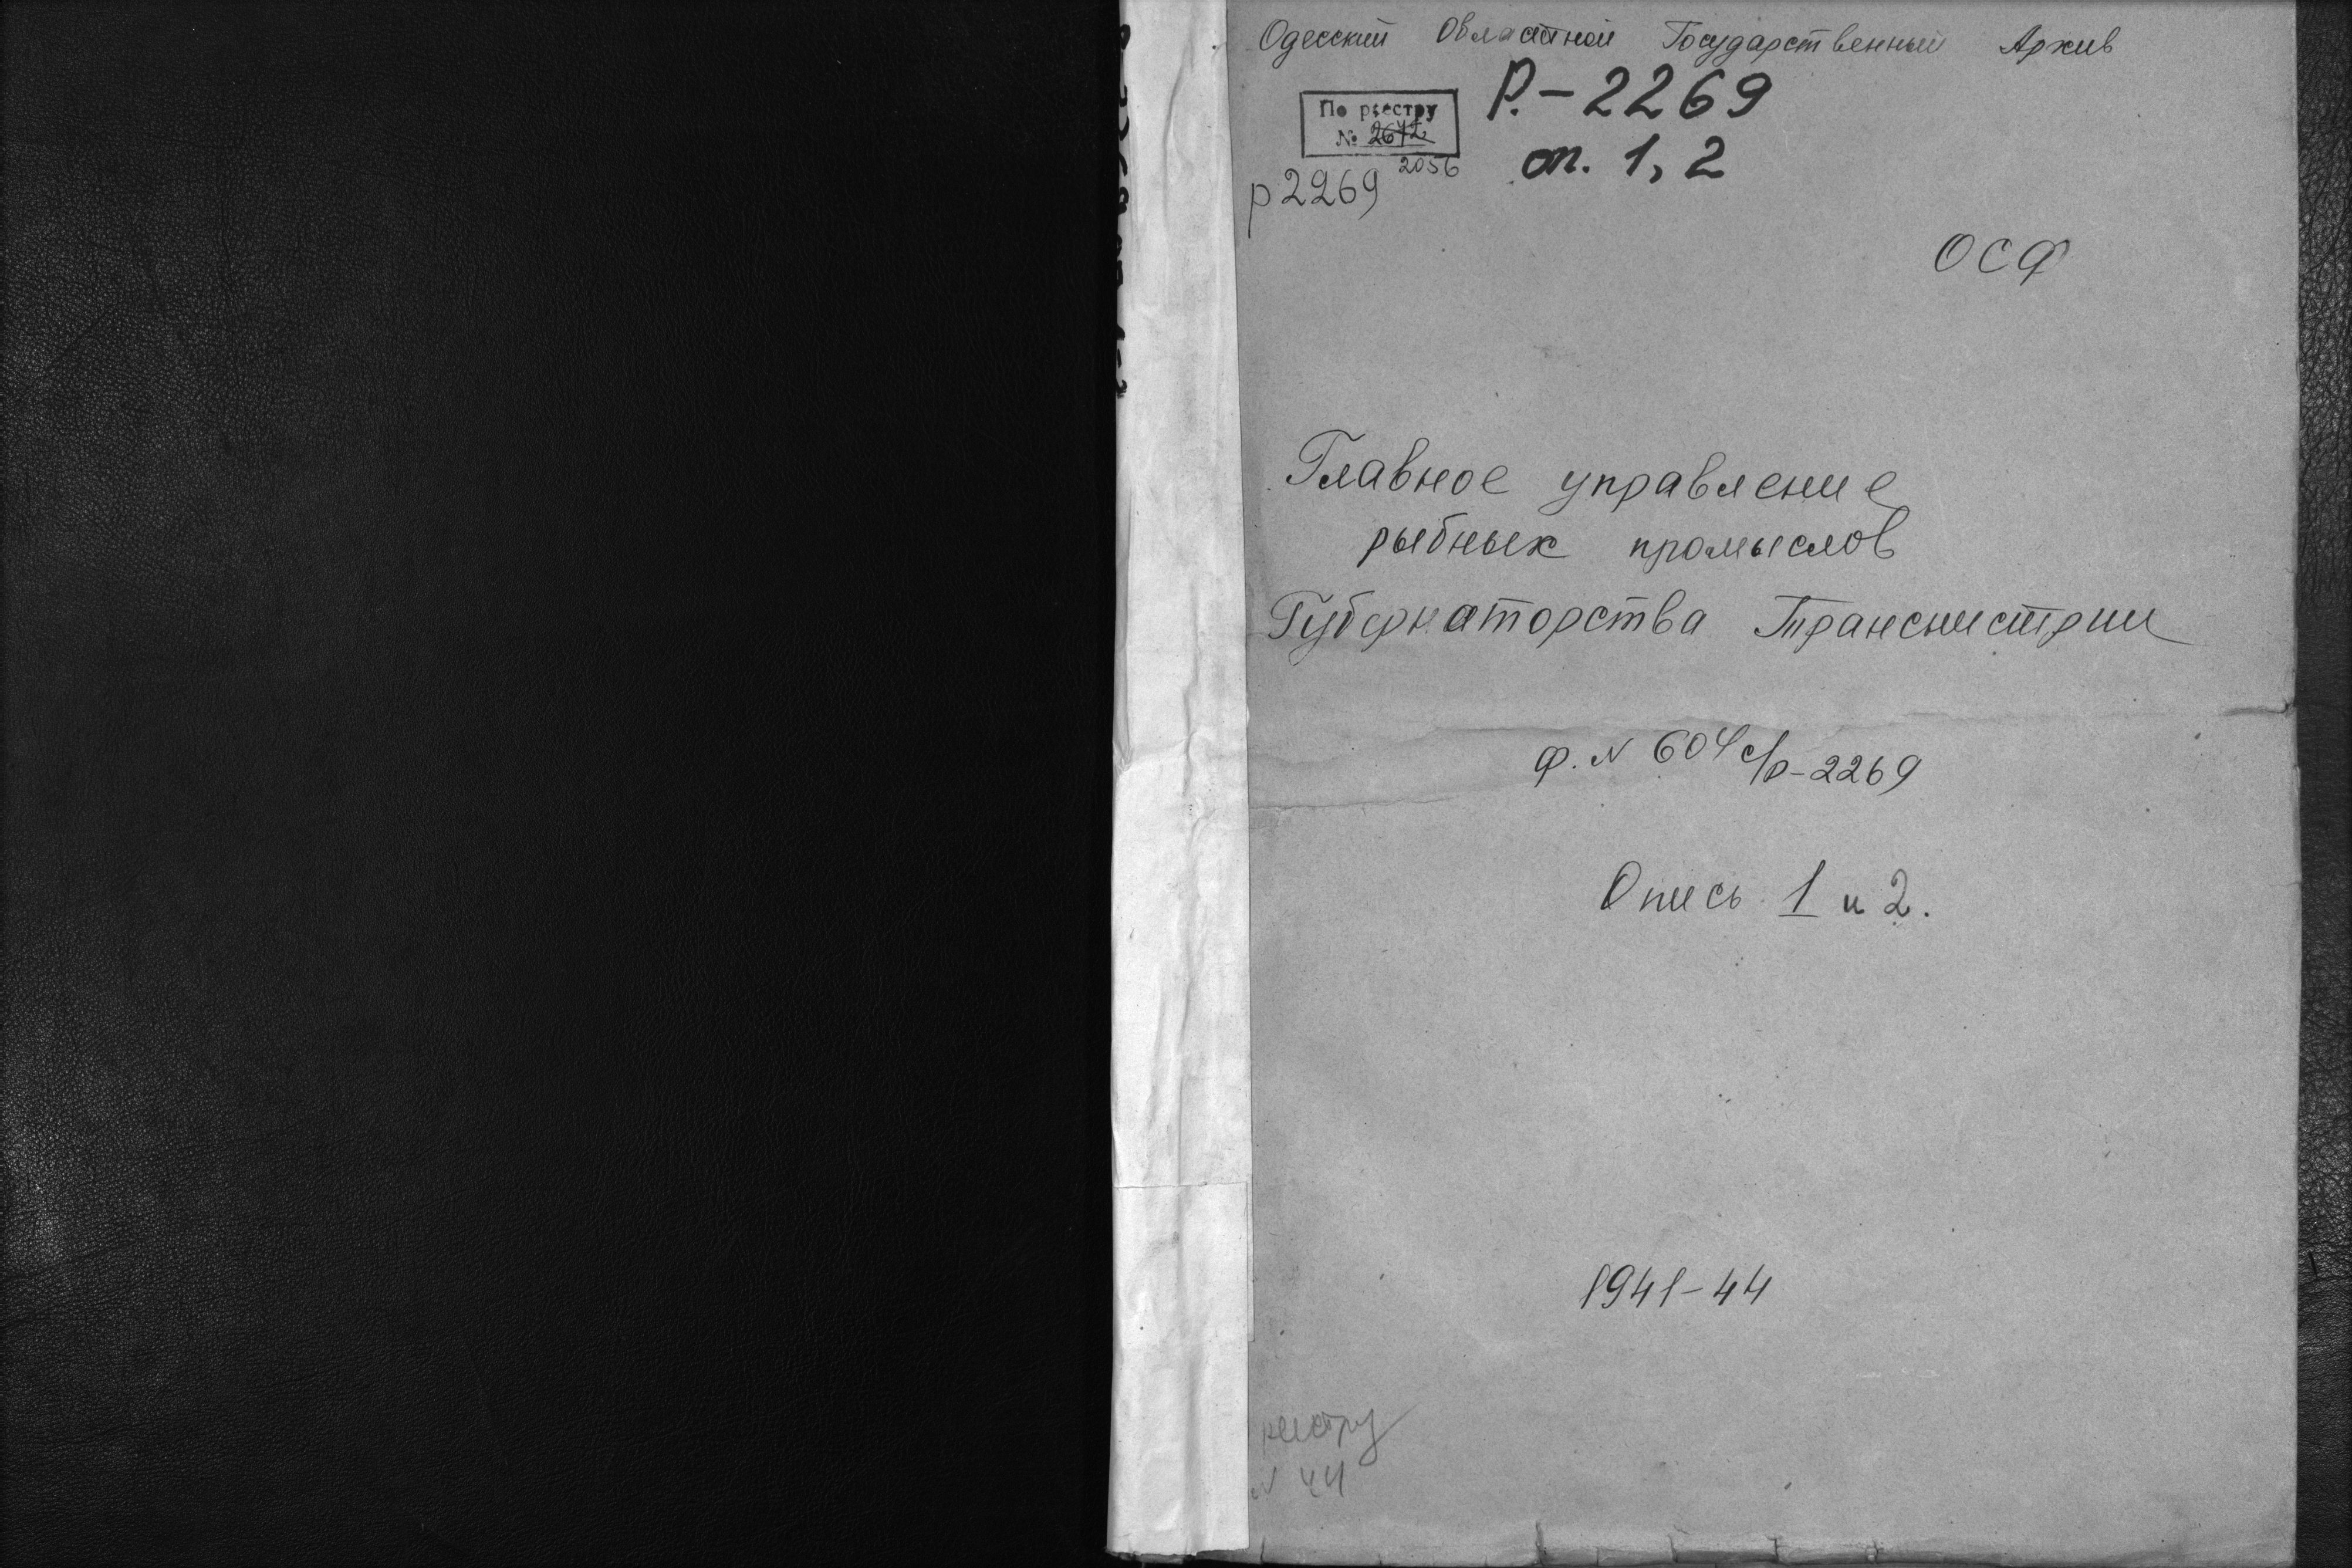 Одесский Областной Государственный Архив
Р.-2269
По реестру
№ 2672
2056
оп. 1, 2
р2269
ОСФ
Главное управление
рыбных промыслов
Губернаторства Транснистрии
Ф. N 604с/р-2269
Опись 1 и 2.
1941-44
реестру
N 44